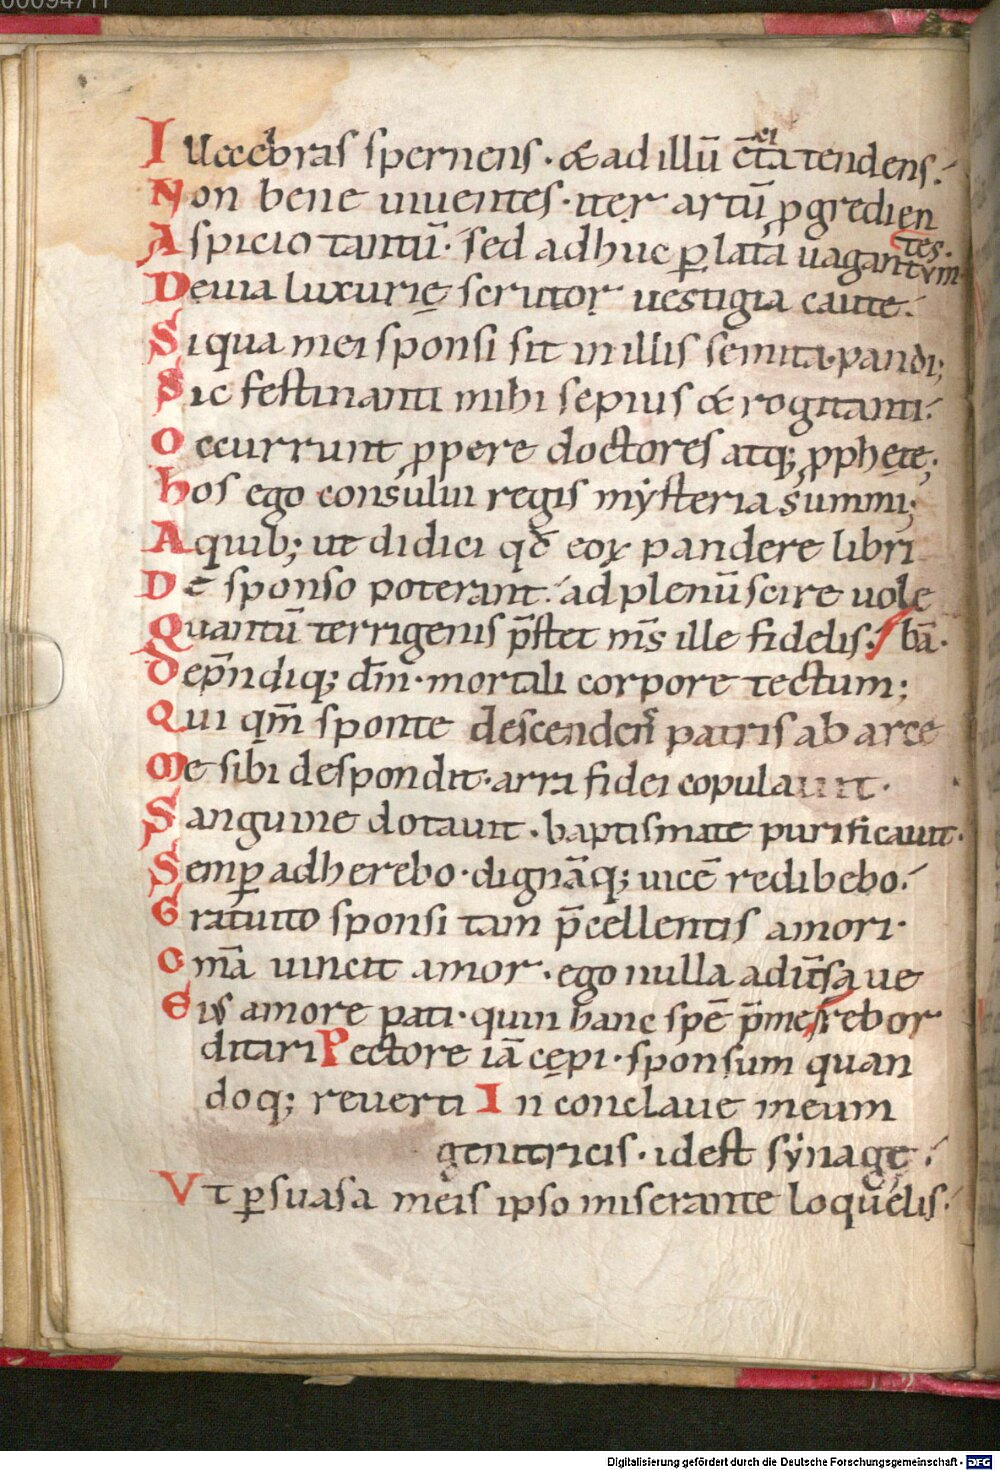 00094711
Illecebras spernens · & ad illū c̄ta tendens ·
Non bene uiuentes · iter artū ꝓgredien
tes ·
Aspicio tantū · sed adhuc ꝑ lata uagantvm
Deuia luxurię scrutor uestigia caute ·
Siqua mei sponsi sit in illis semita pandi;
Sic festinanti mihi sepius & rogitanti ·
Occurrunt ꝓpere doctores atq; ꝓphętę;
hos ego consului regis mẏsteria summi;
A quib; ut didici qđ eoꝝ pandere libri
De sponso poterant · ad plenū scire uole
Quantū terrigenis p̄stet m̄s ille fidelis · bā ·
dep̄ndiq; dm̄ · mortali corpore tectum;
Qui qm̄ sponte descendens patris ab arce
Me sibi despondit · arra fidei copulauit ·
Sanguine dotauit · baptismate purificauit ·
Semꝑ adherebo · dignāq; uicē redibebo ·
Gratuito sponsi tam p̄cellentis amori ·
Om̄a uincit amor · ego nulla aduūsa ue
Eius amore pati · quin hanc spē p̄me rebor
ditari Pectore iā cępi · sponsum quan
doq; reuerti In conclaue meum
genitricis · idest sẏnagę ·
Vt ꝑsuasa meis ipso miserante loquelis ·
Digitalisierung gefördert durch die Deutsche Forschungsgemeinschaft - DFG